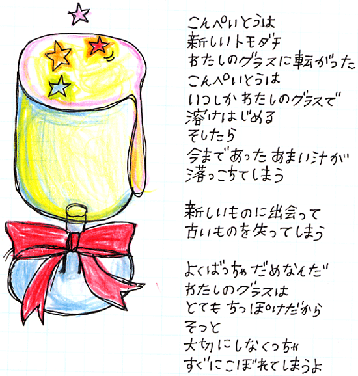 こんぺいとうは
新しいトモダチ
わたしのグラスに転がった
こんぺいとうは
いつしかわたしのグラスで
溶けはじめる
そしたら
今まであったあまい汁が
落っこちてしまう
新しいものに出会って
古いものを失ってしまう
よくばっちゃだめなんだ
わたしのグラスは
とてもちっぽけだから
そっと
大切にしなくっちゃ
すぐにこぼれてしまうよ